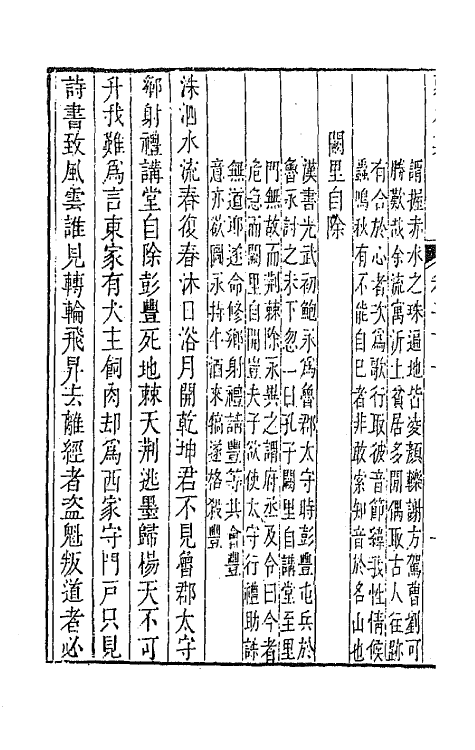 謂握赤水之珠遍地皆凌顏轢謝方駕曹劉可
勝歎哉余流寓沂土貧居多閒偶取古人往跡
有合於心者次為歌行取彼音節緯我性情候
蟲鳴秋有不能自巳者非敢索知音於名山也
闕里自除
漢書光武初鮑永為魯郡太守時彭豐屯兵於
魯永討之未下忽一日孔子闕里自講堂至里
門無故而荆棘除永異之謂府丞及令曰今者
危急而闕里自開豈夫子欲使太守行禮助誅
無道耶遂命修鄉射禮請豐等共會豐
意亦欲圖永持牛酒來犒遂格殺豐
洙泗水流春復春沐日浴月開乾坤君不見魯郡太守
鄉射禮講堂自除彭豐死地棘天荆逃墨歸楊天不可
升我難為言東家有犬主飼肉却為西家守門戶只見
詩書致風雲誰見轉輪飛昇去離經者盗魁叛道者必